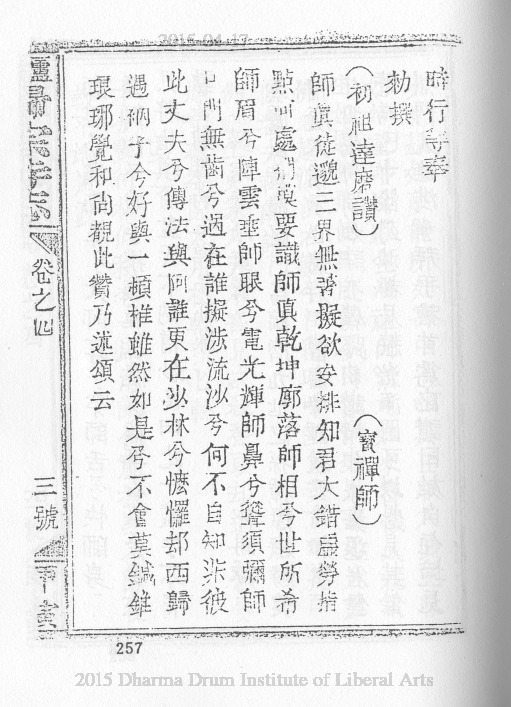 2015-04-17
時行等奉
勅撰
（初祖達磨讚）（寶禪師）
師眞徒邈三界無著擬欲安排知君大錯虛勞指
點何處捫摸要識師眞乾坤廓落師相兮世所希
師眉兮陣雲垂師眼兮電光輝師鼻兮聳須彌師
口門無齒兮過在誰擬涉流沙兮何不自知柴彼
此丈夫兮傳法與阿誰更在少林兮懡㦬却西歸
遇衲子兮好與一頓椎雖然如是兮不會莫鍼錐
瑯琊覺和尚覩此贊乃述頌云
卷之四
三號
257
2015 Dharma Drum Institute of Liberal Arts